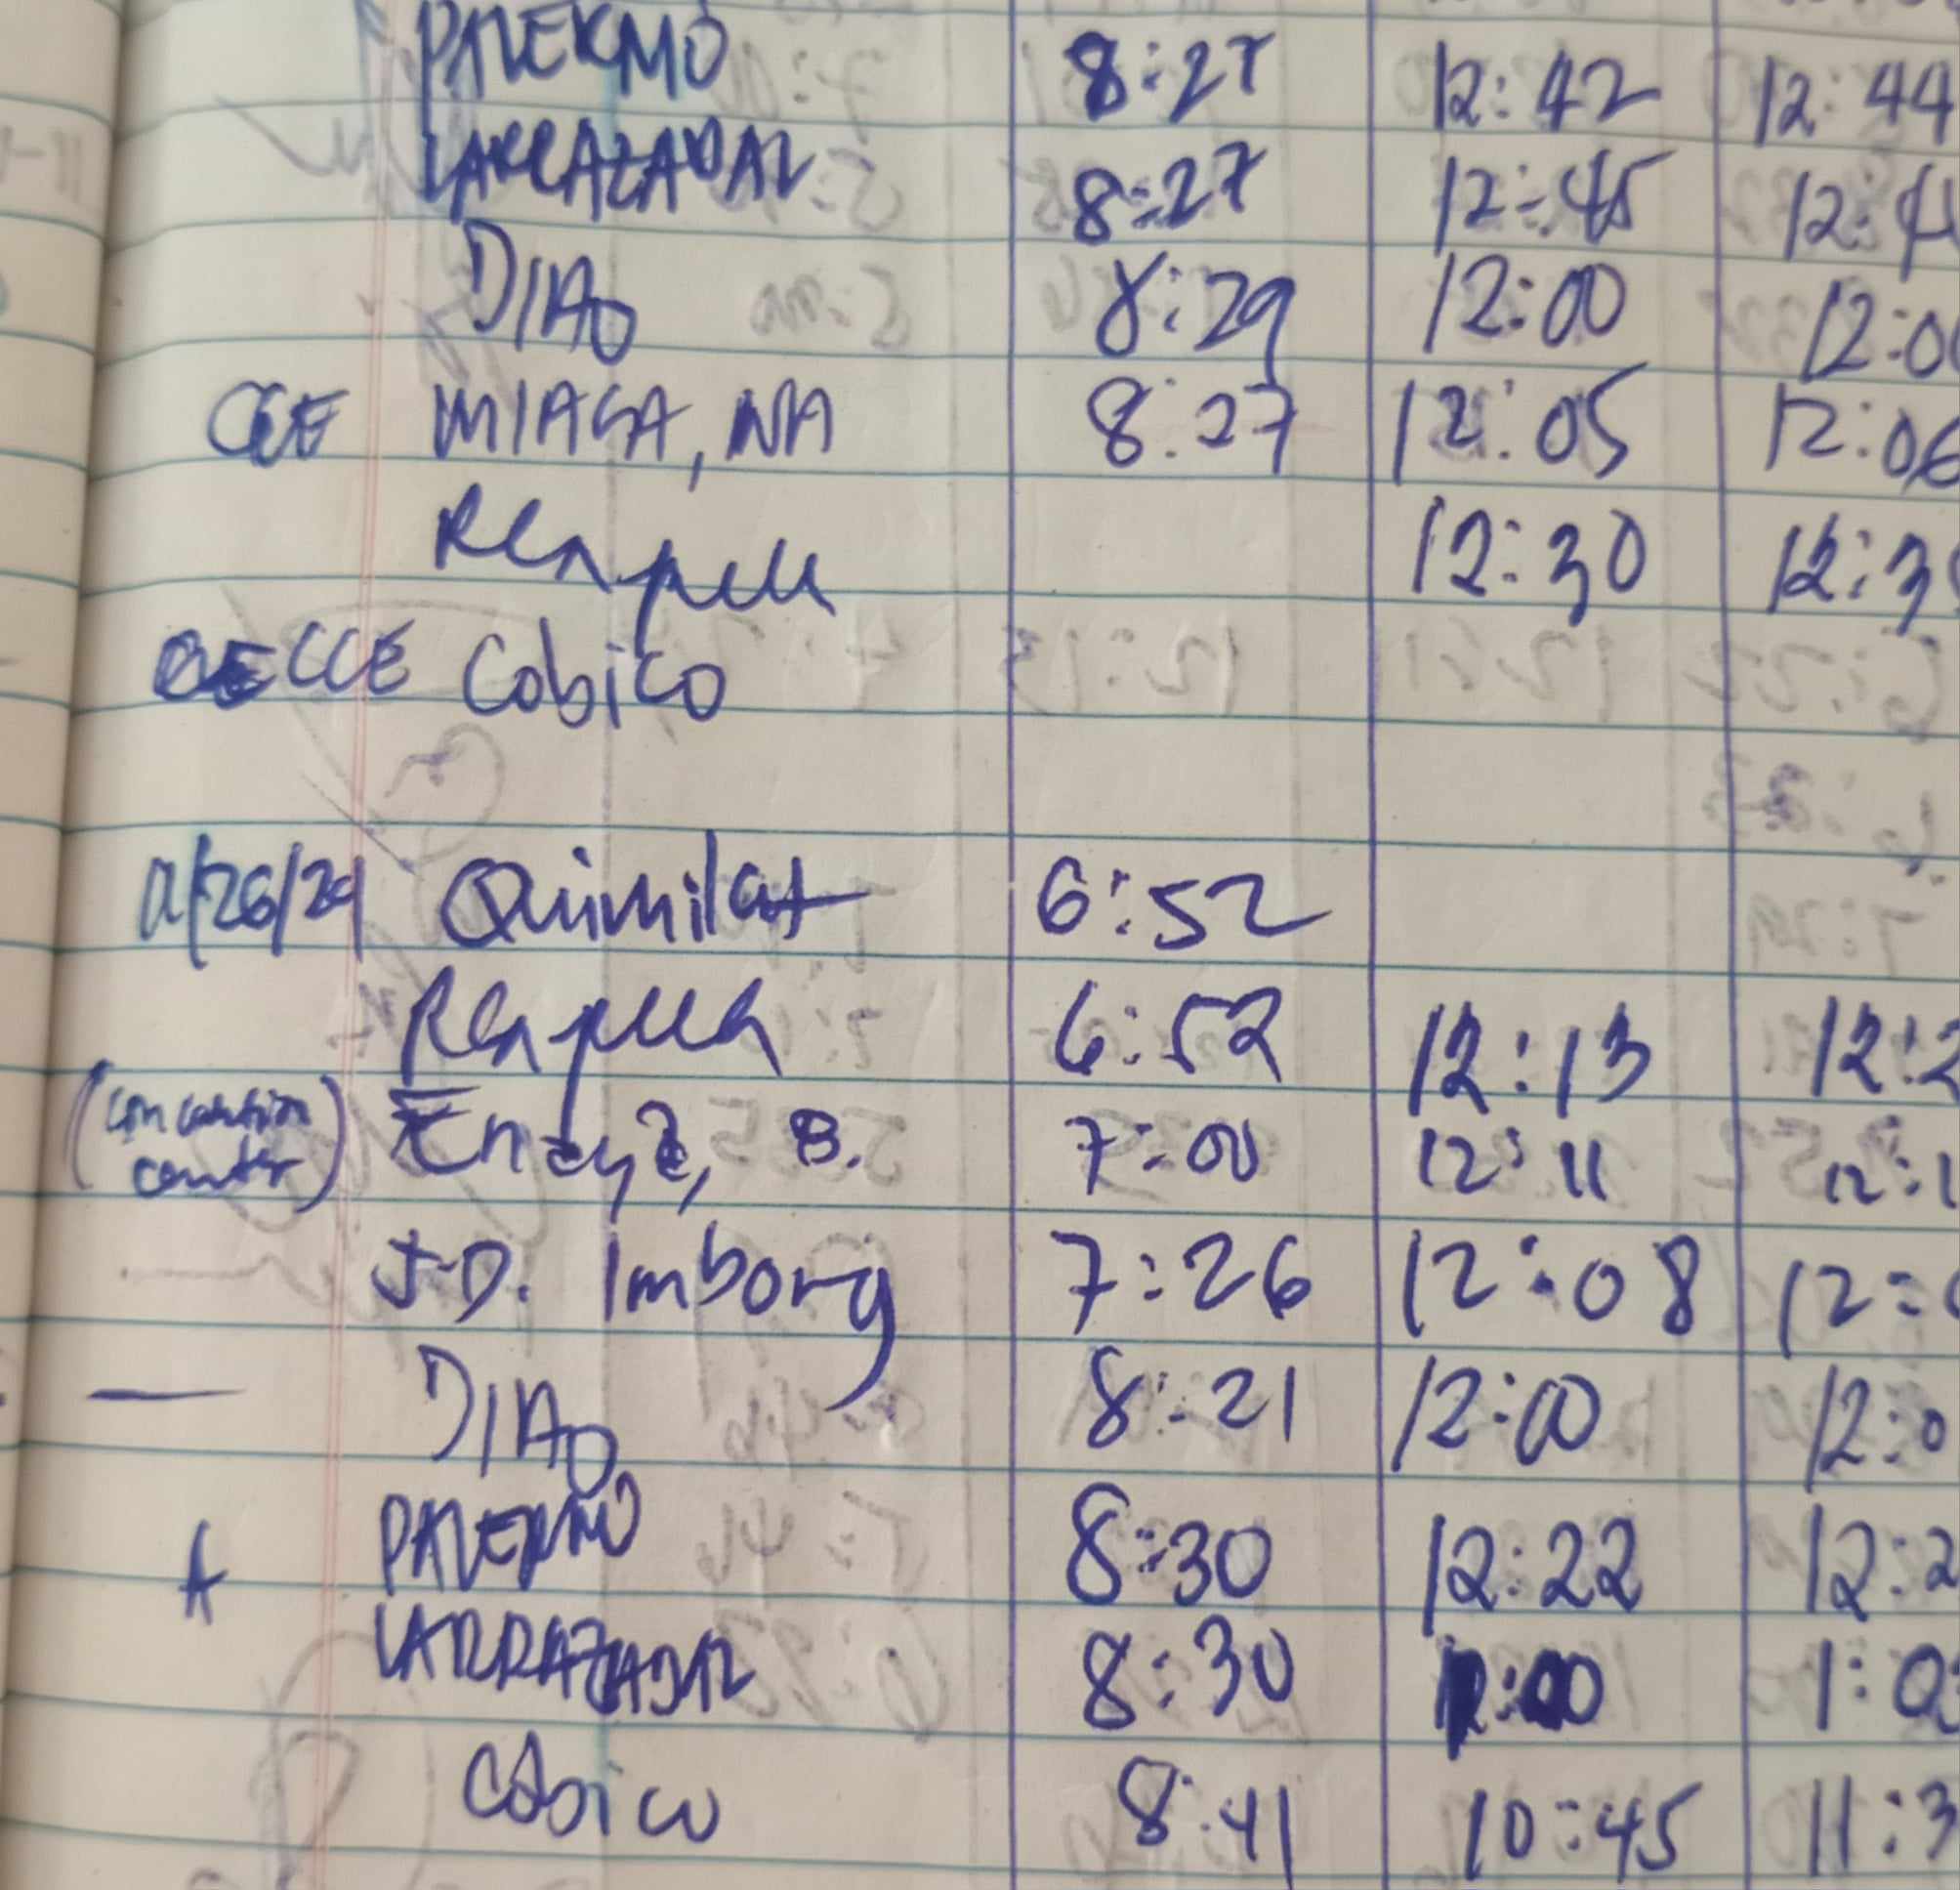 PALERMO 8:27 12:42 12:44
LARRAZABAL 8:27 12:45 12:4
DIAO 8:29 12:00 12:0
CCE MIAGA, NA 8:27 12:05 12:06
12:30 12:3
CCE Cobico
11/26/24 Quimilat 6:52
6:52 12:13 12:2
(convention B. 7:00 12:11 12:1
center)
J.D. Imborg 7:26 12:08 12:0
DIAO 8:21 12:00 12:0
A PALERMO 8:30 12:22 12:2
LARRAZABAL 8:30 1:03
Cobico 8:41 10:45 11:3